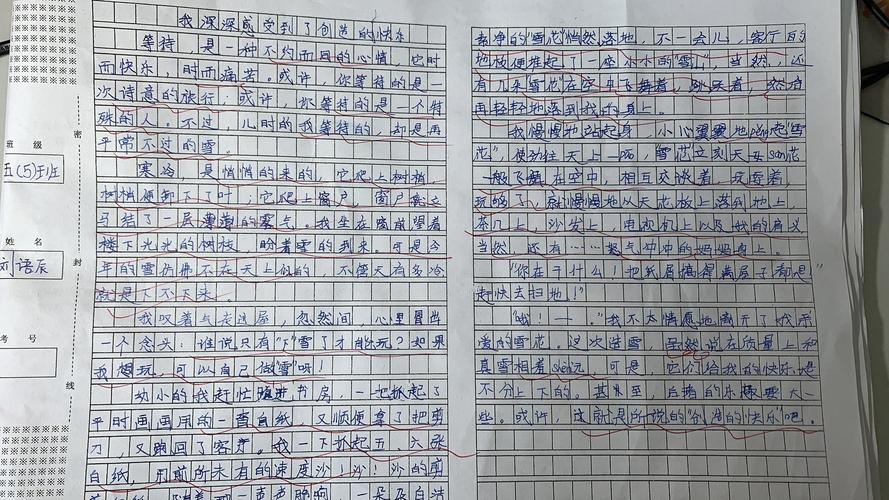 班级
五(5)班
姓名
刘语辰
考号
密
封
线
我深深感受到了创造的快乐
等待，是一种不约而同的心情，它时
而快乐，时而痛苦。或许，你等待的是一
次诗意的旅行；或许，你等待的是一个特
殊的人。不过，儿时的我等待的，却是再
平常不过的雪。
寒冷，是悄悄的来的，它爬上树梢，
树梢便卸下了叶；它爬上窗户，窗户立
马结了一层薄薄的雾气。我坐在窗前望着
楼下光光的树枝，盼着雪的到来，可是今
年的雪仿佛不在天上似的，不管天有多冷
就是下不下来。
我叹着气走进屋，忽然间，心里冒出
一个念头：谁说只有"下"雪了才能玩？如果
我想玩，可以自己做"雪"呀！
幼小的我赶忙进书房，一把抓起了
平时画画用的一沓白纸，又顺便拿了把剪
刀，又跑回了客厅。我一下抓起五、六张
白纸，用前所未有的速度沙！沙！沙的剪
一声声脆响，一朵朵白洁
素净的"雪花"悄然落地，不一会儿，客厅的
地板便堆起了一座小小的"雪"，当然，还
有几朵"雪花"在空中飞舞着，跳跃着，然后
再轻轻地落到我的身上。
我慢慢地站起身，小心翼翼地peng起"雪
花"，使劲往天上一po，"雪花"立刻天女san花
一般飞舞在空中，相互交谈着，玩耍着，
玩够了，就慢慢地从天花板上落到地上，
茶几上，沙发上，电视机上以及我的肩
当然，还有……怒气冲冲的妈妈身上。
"你在干什么！把纸屑搞得满屋子都是
赶快去扫地！"
"哦！—。"我不太情愿地离开了我所
爱的雪花。这次造雪，虽然说在质量上和
真雪相差shen远，可是，它们给我的快乐是
不分上下的。甚至，自造的乐趣要大一
些。或许，这就是所说的"创造的快乐"吧。